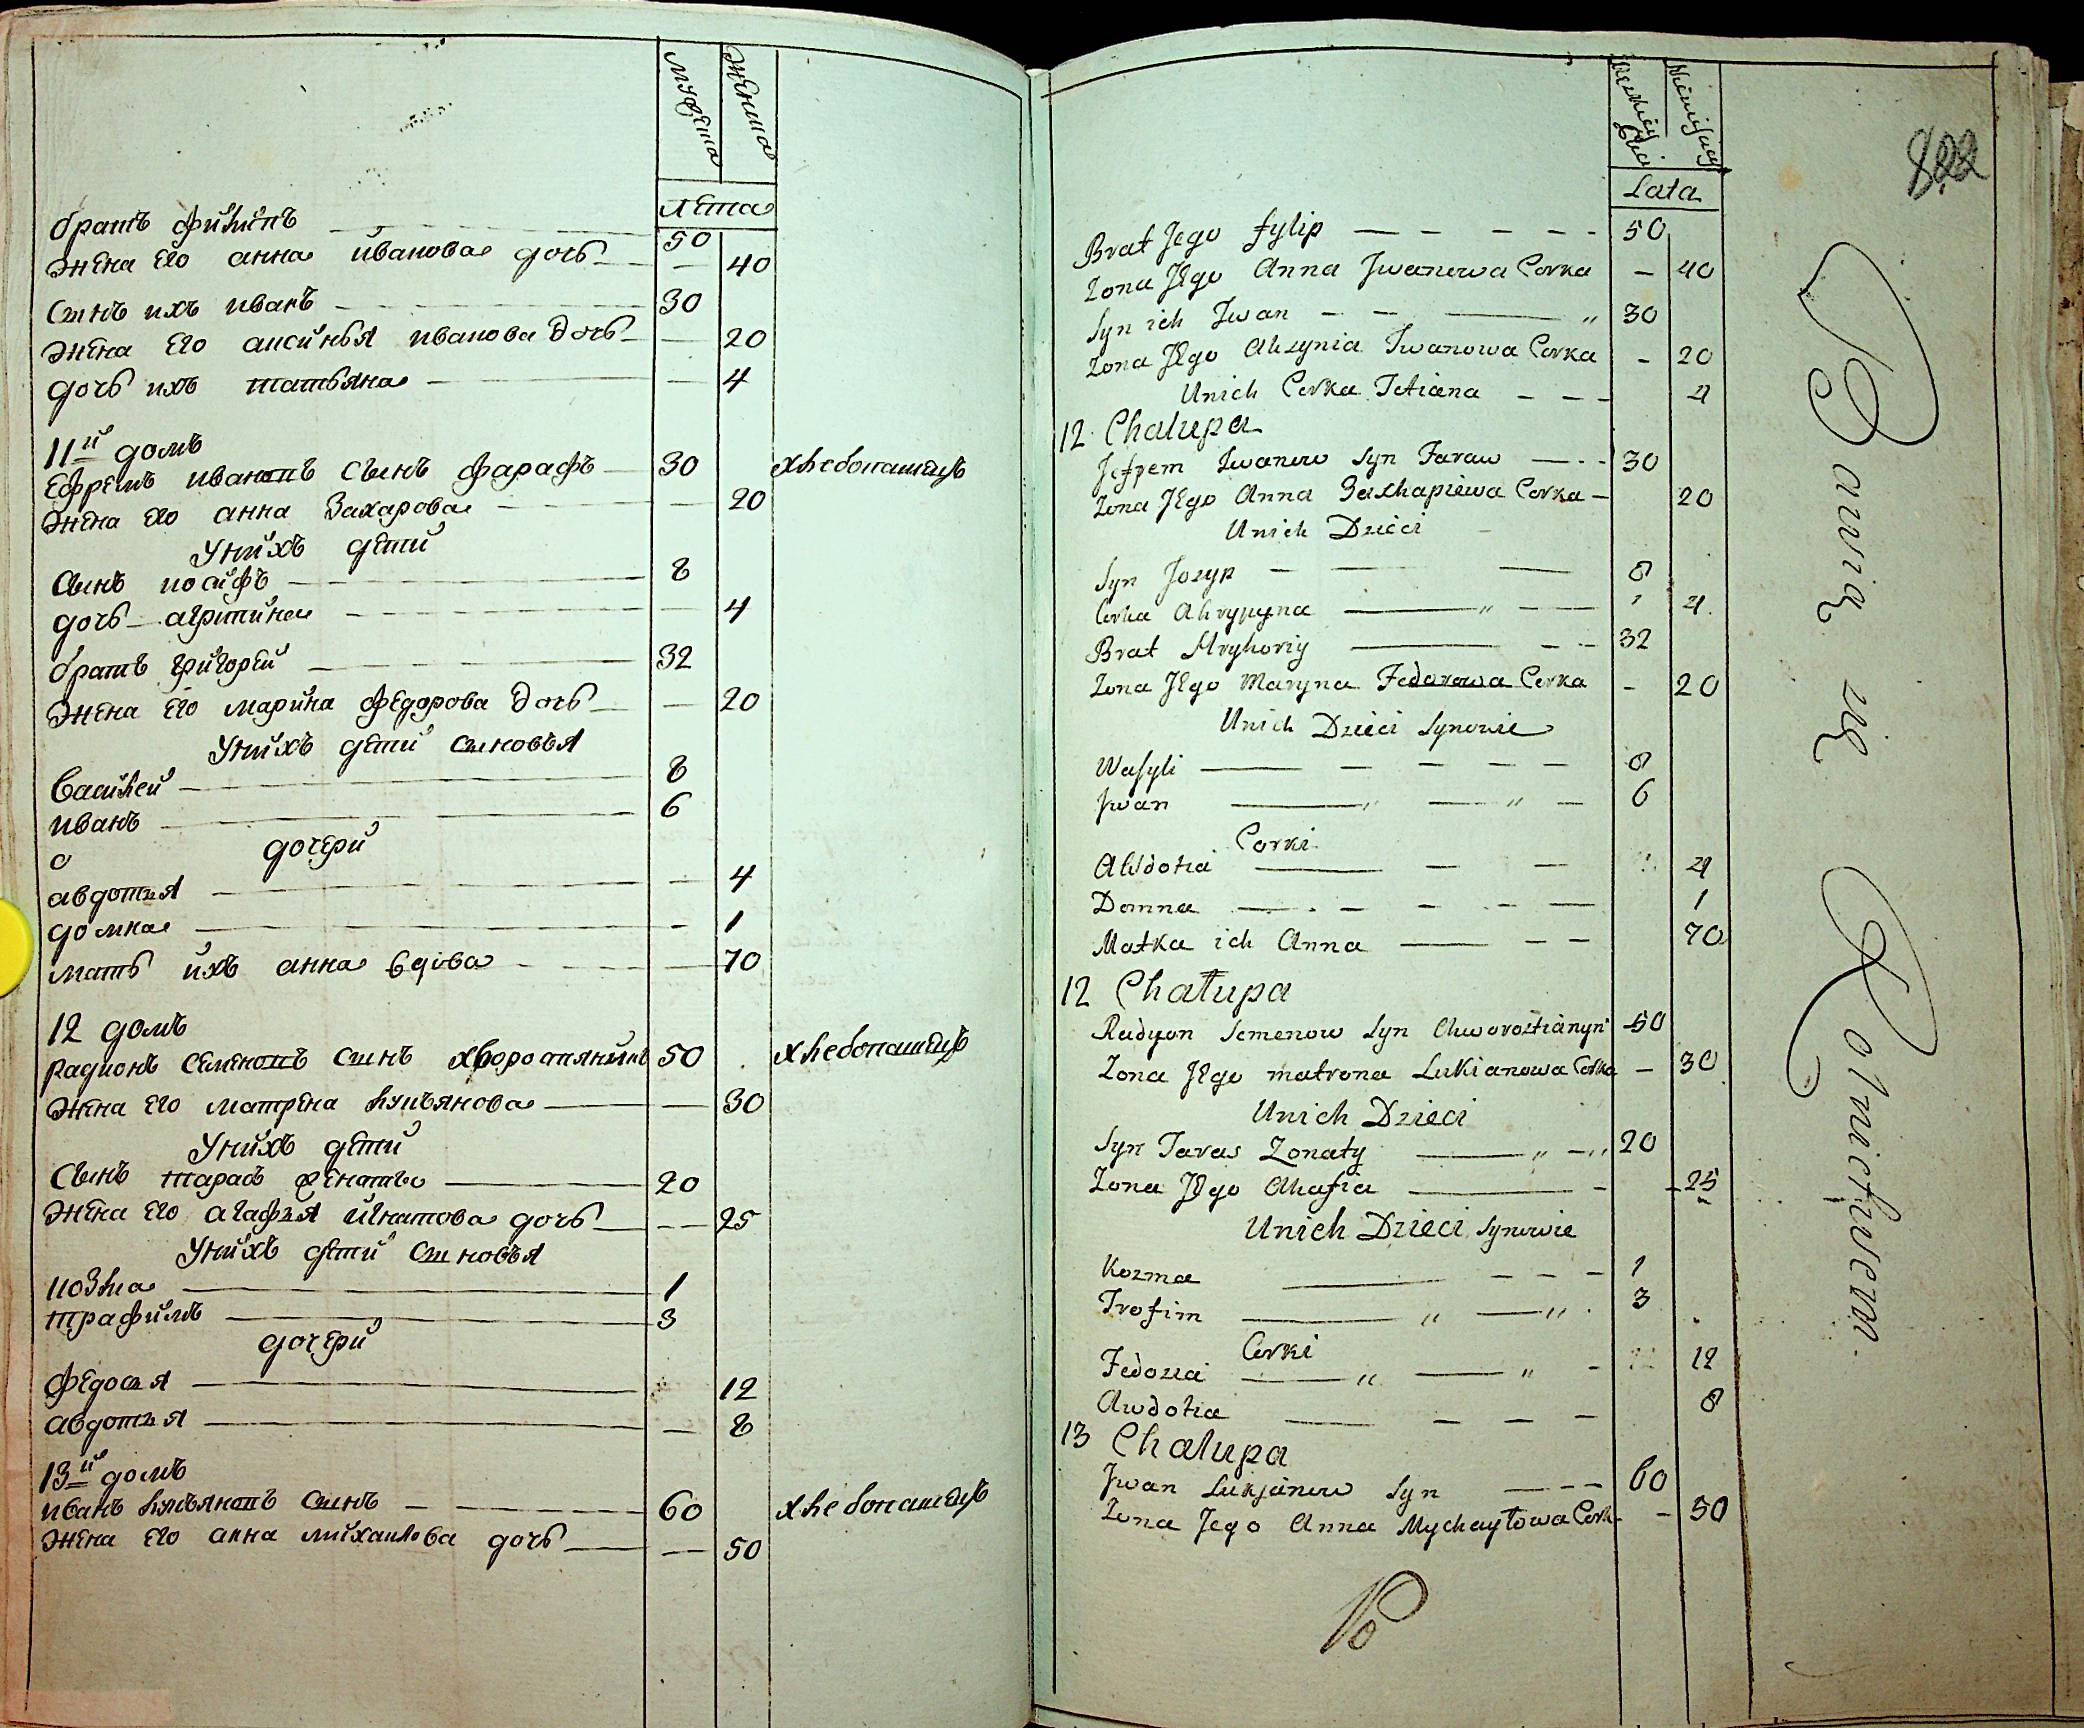 мужеска
женска
лета
братъ филипъ 50
жена его анна иванова дочь — 40
сынъ ихъ иванъ 30
жена его аксинья иванова дочь — 20
дочь ихъ татьяна — 4
11й домъ
ефремъ ивановъ сынъ фарафъ 30 хлебопашецъ
жена его анна Захарова — 20
у нихъ дети
сынъ иосифъ 8
дочь агрипина — 4
братъ григорей 32
жена его марина федорова дочь — 20
у нихъ дети сыновья
василей 8
иванъ 6
дочери
авдотья — 4
домна — 1
мать ихъ анна вдова — 70
12 домъ
радионъ семеновъ сынъ хворостянинъ 50 хлебопашецъ
жена его матрена лукъянова — 30
у нихъ дети
сынъ тарасъ женатъ 20
жена его агафья игнатова дочь — 25
у нихъ дети сыновья
козма 1
трафимъ 3
дочери
федосья 12
авдотья — 8
13й домъ
иванъ лукъяновъ сынъ 60 хлебопашецъ
жена его анна михаилова дочь — 50
822
Lata
Brat Jego fylip 50
Zona Jego Anna Jwanowa Corka — 40
Syn ich Jwan 30
Zona Jego Akzynia Jwanowa Corka — 20
Unich Corka Tetiana 4
12 Chalupa
Jefrem Jwanow Syn Faraw 30
Zona Jego Anna Zachapiewa Corka — 20
Unich Dzieci
Syn Jozyp 8
Corka Ahrypyna 4
Brat Hryhoriy 32
Zona Jego Maryna Fedorowa Corka — 20
Unich Dzieci Synowie
Wasyli 8
Jwan 6
Corki
Awdotia 4
Domna 1
Matka ich Anna 70
12 Chałupa
Radyon Semenow Syn Chworostianyn 50
Zona Jego matrona Lukianowa Corka — 30
Unich Dzieci
Syn Taras Zonaty 20
Zona Jego Ahafia 25
Unich Dzieci Synowie
Kozma 1
Trofim 3
Corki
Fedozia 12
Awdotia 8
13 Chalupa
Jwan Lukjanow Syn 60
Zona Jego Anna Mychayłowa Cork — 50
Bawią się Rolnictwem